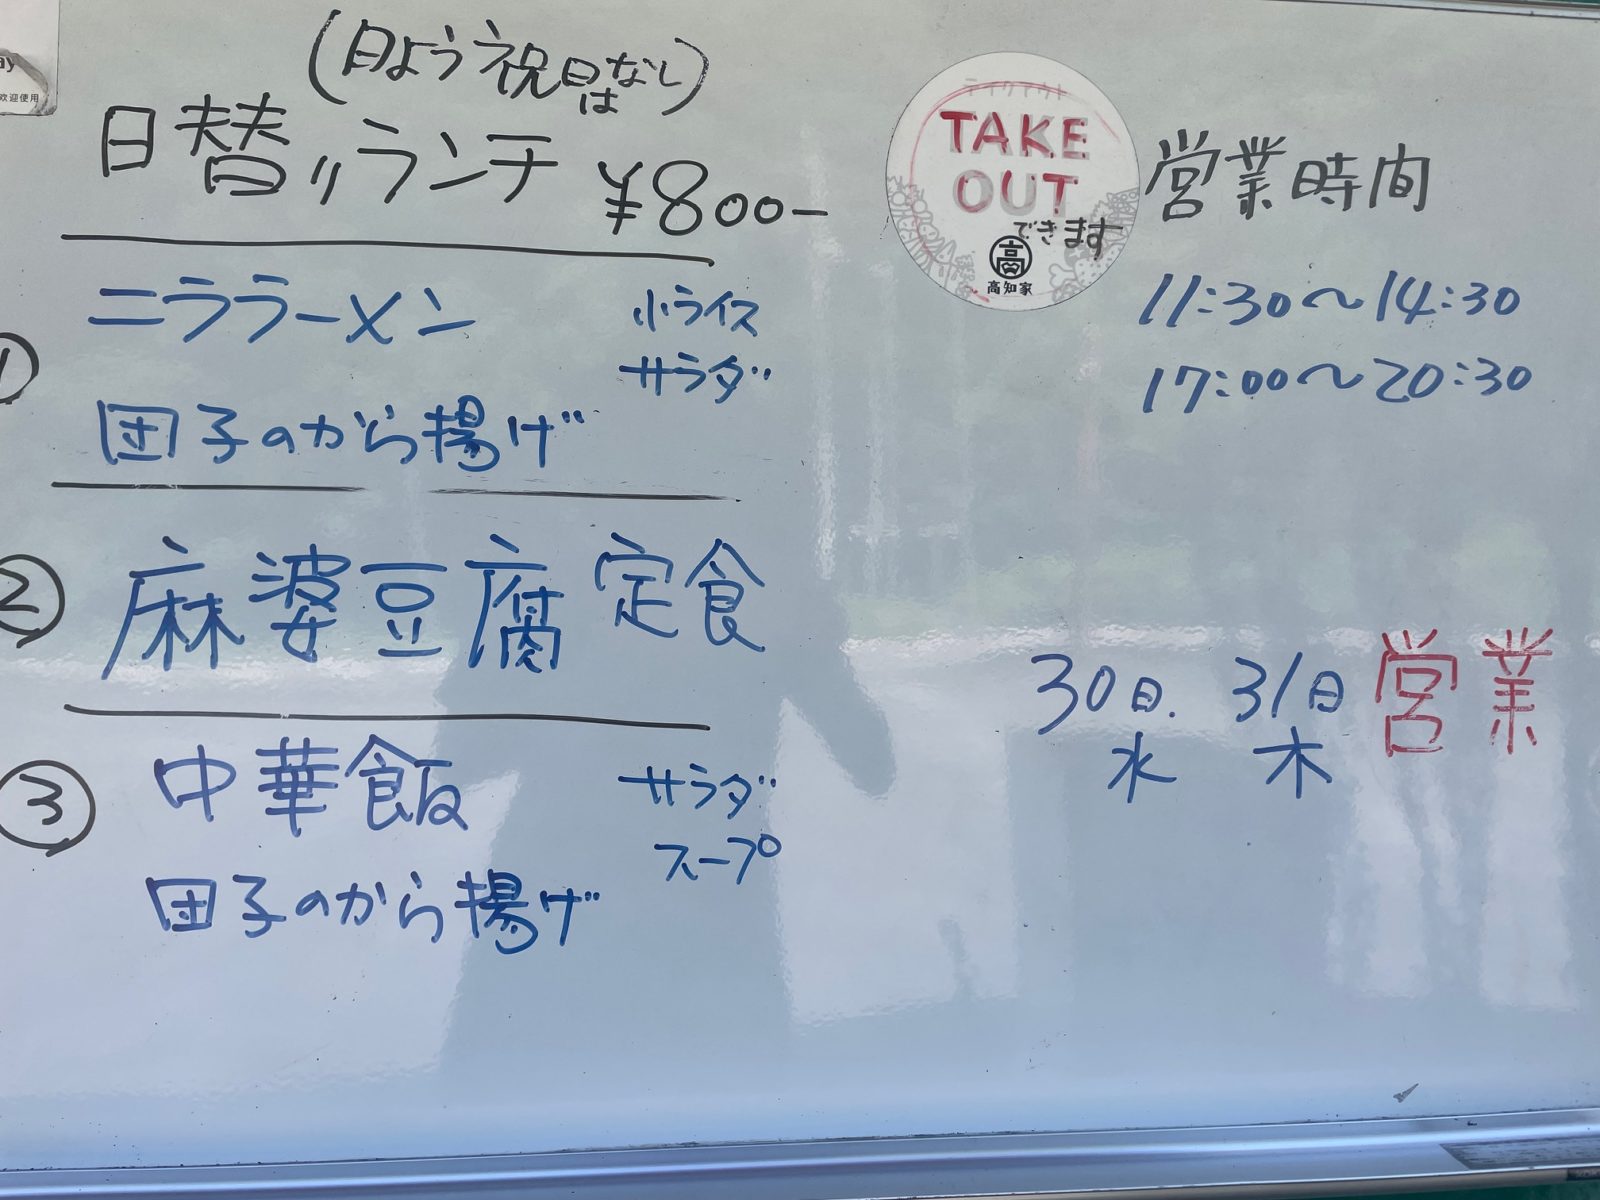 ay
欢迎使用
(日よう祝日はなし)
日替りランチ ¥800-
① ニララーメン 小ライス
サラダ
団子のから揚げ
② 麻婆豆腐定食
③ 中華飯 サラダ
スープ
団子のから揚げ
テイクアウト
TAKE
OUT
できます
高
高知家
営業時間
11:30〜14:30
17:00〜20:30
30日. 31日 営業
水 木